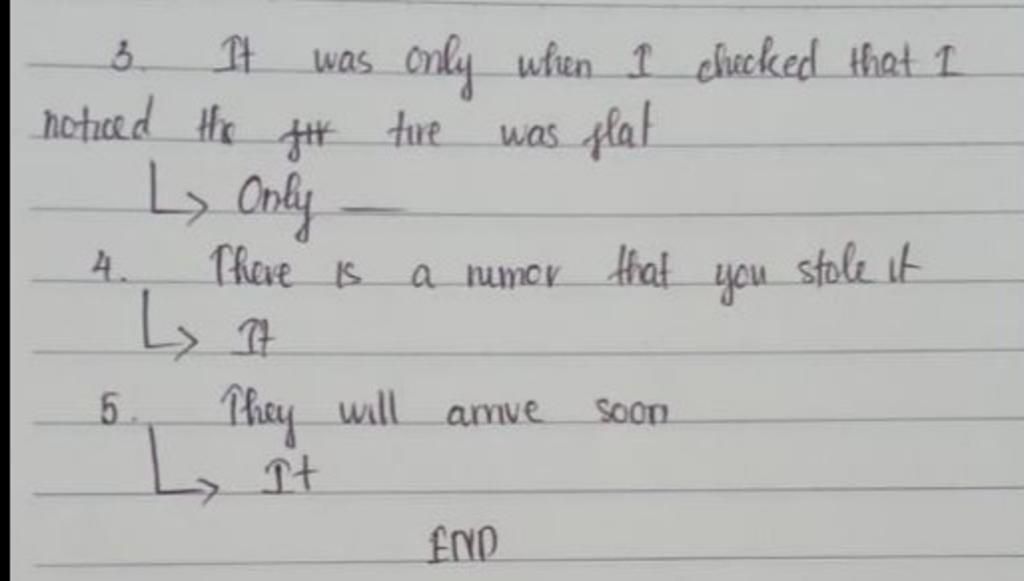 3. It was only when I checked that I
noticed the tire was flat
↳ Only —
4. There is a rumor that you stole it
↳ It
5. They will arrive soon
↳ It
END